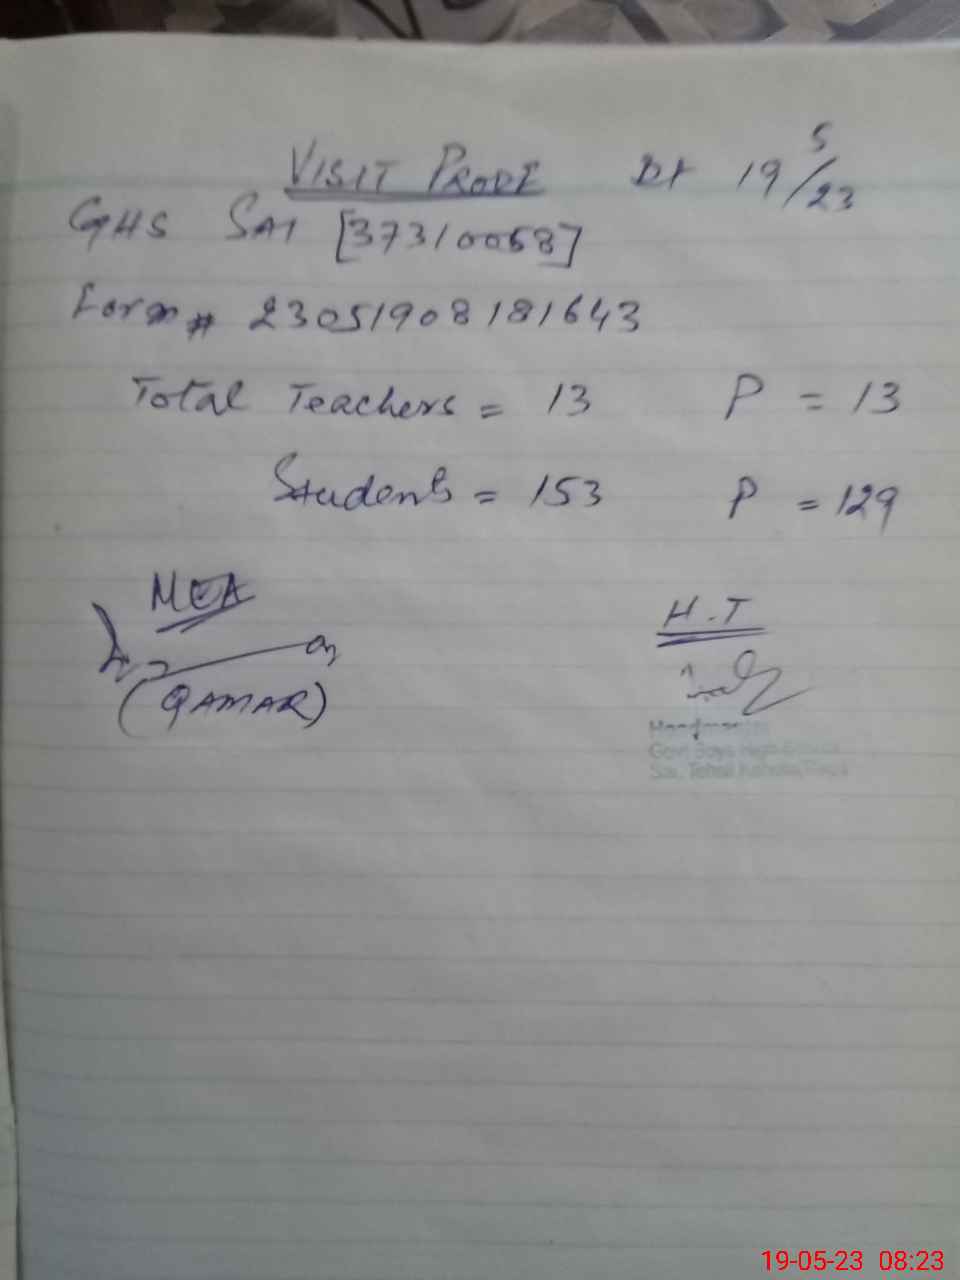 VISIT PROOF Dt 19/5/23
GHS SAI [37310058]
Form # 23051908181643
Total Teachers = 13 P = 13
Students = 153 P = 129
MEA H.T
(QAMAR)
Govt Boys High
19-05-23 08:23